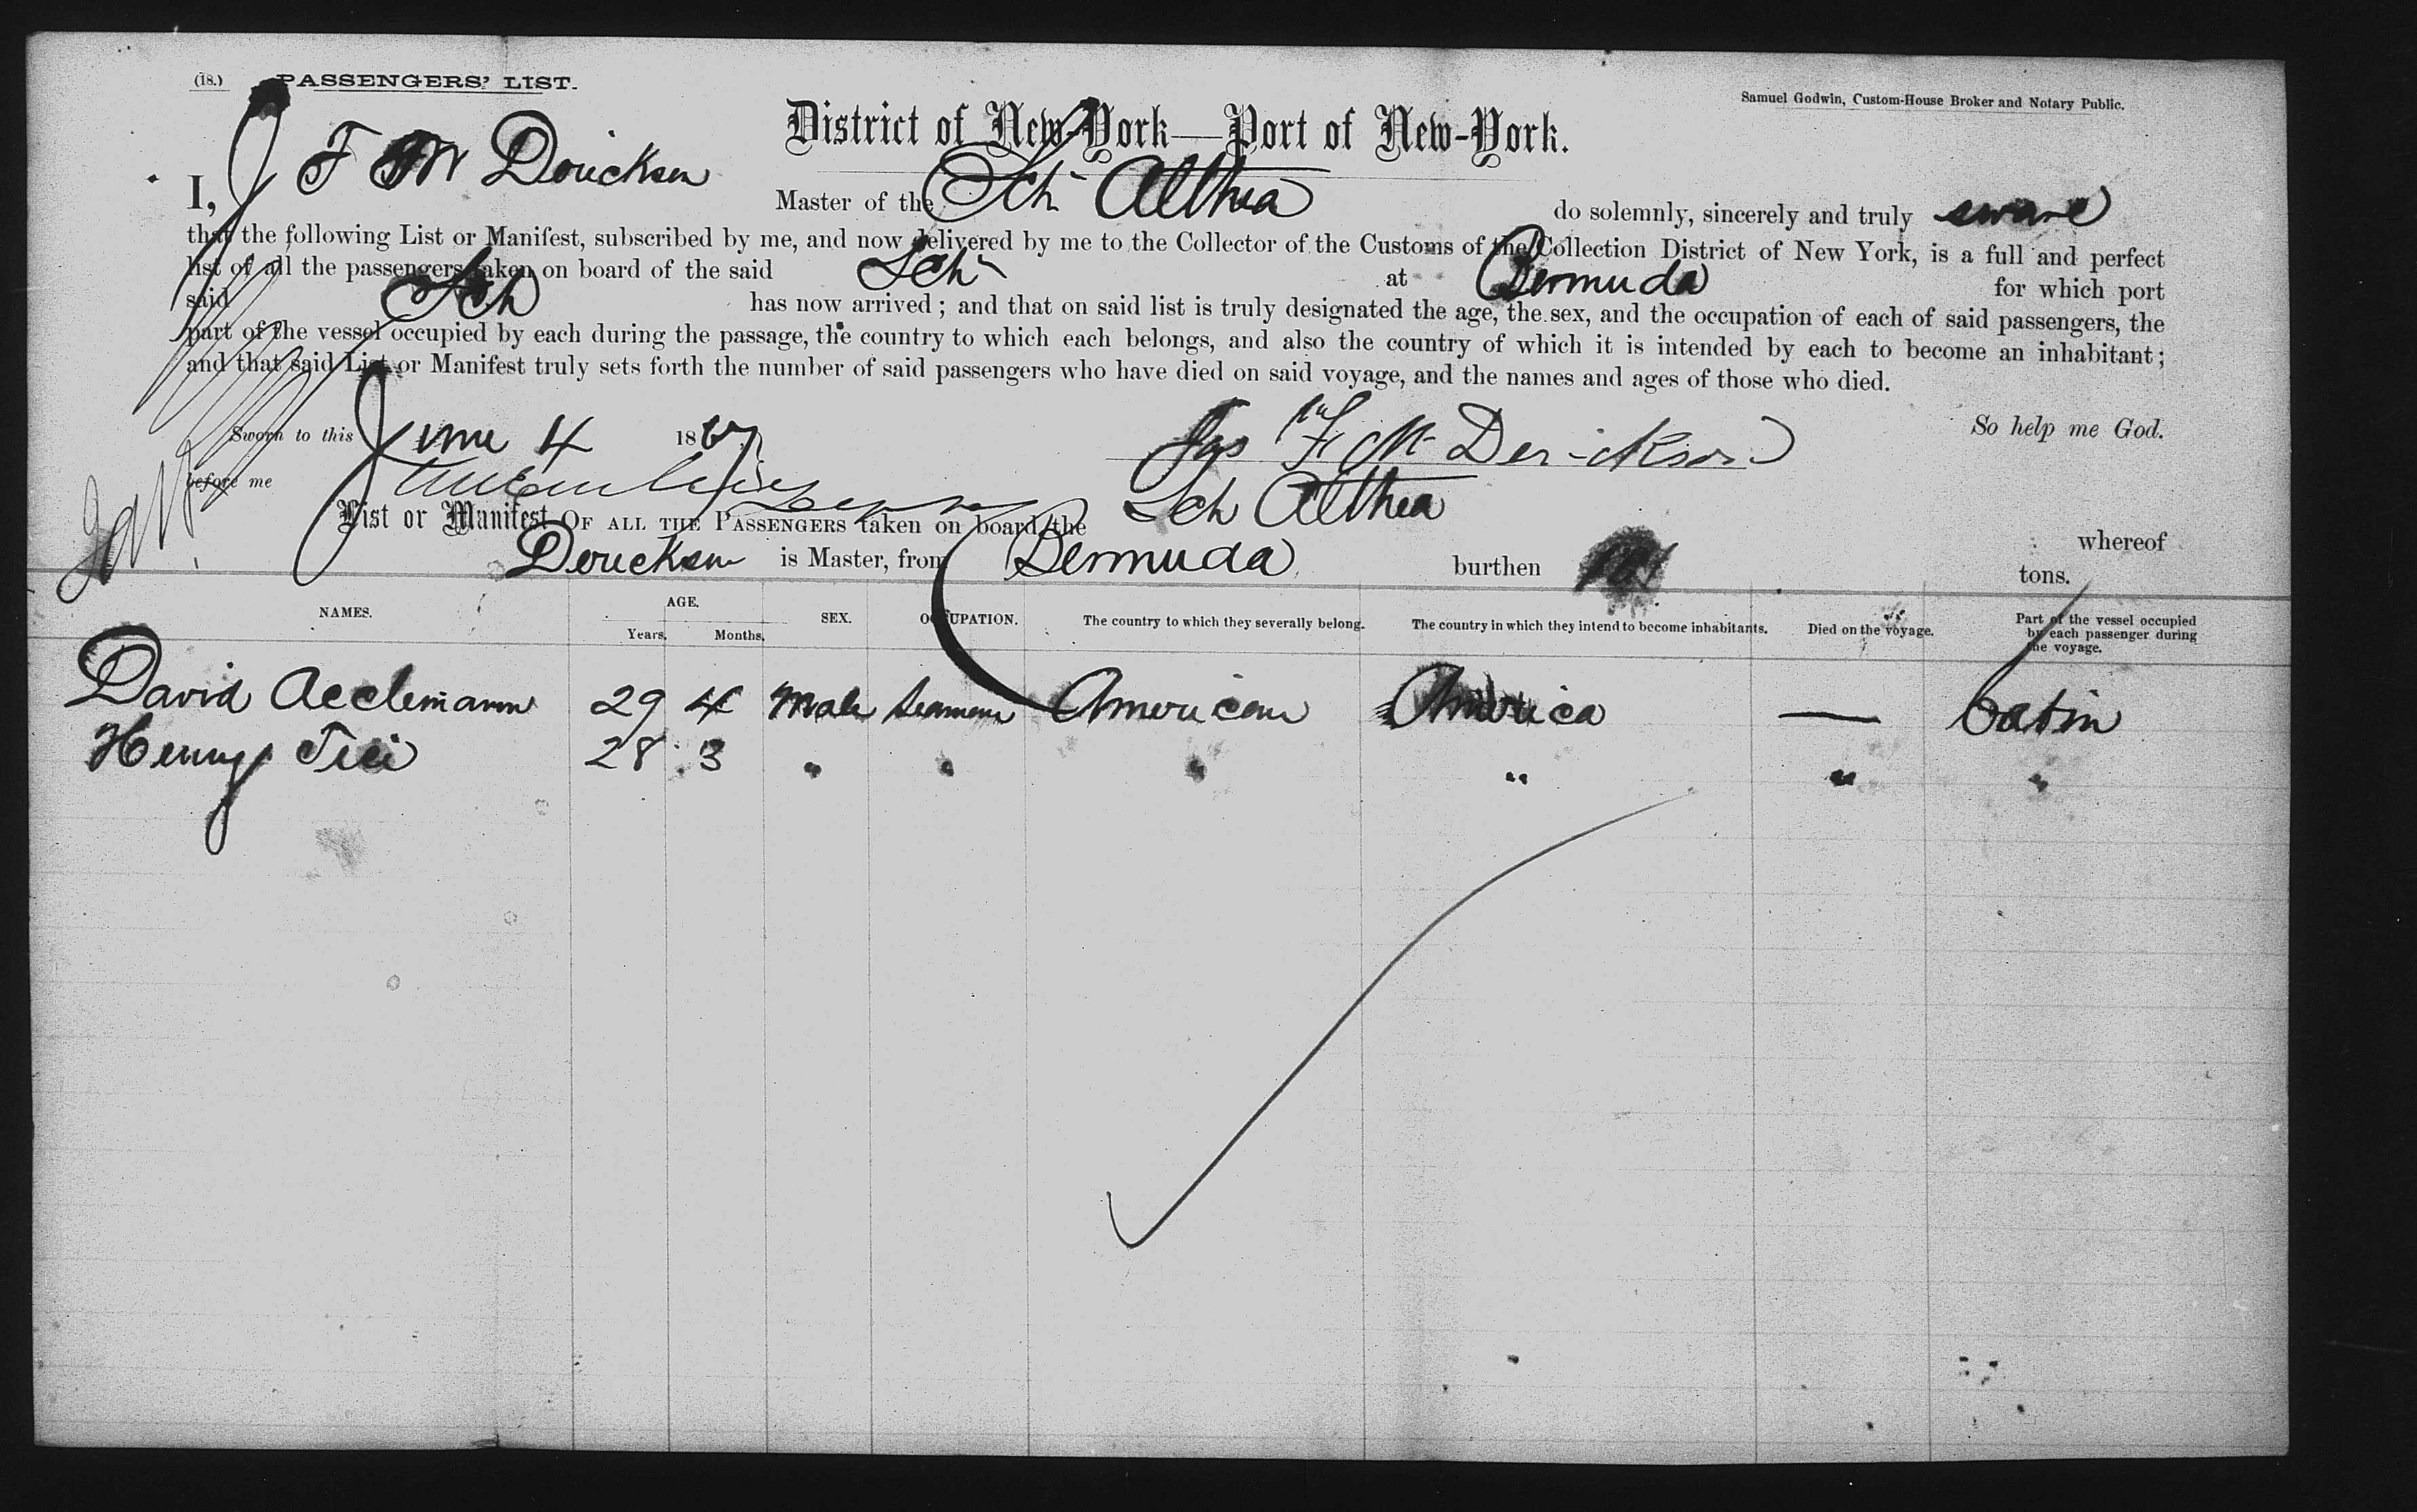 (18.) PASSENGERS' LIST.
Samuel Godwin, Custom-House Broker and Notary Public.
District of New-York—Port of New-York.
I, J F M Derickson Master of the Sch Althea do solemnly, sincerely and truly sware
that the following List or Manifest, subscribed by me, and now delivered by me to the Collector of the Customs of the Collection District of New York, is a full and perfect
list of all the passengers taken on board of the said Sch at Bermuda for which port
said Sch has now arrived; and that on said list is truly designated the age, the sex, and the occupation of each of said passengers, the
part of the vessel occupied by each during the passage, the country to which each belongs, and also the country of which it is intended by each to become an inhabitant;
and that said List or Manifest truly sets forth the number of said passengers who have died on said voyage, and the names and ages of those who died.
So help me God.
Sworn to this June 4 1867 Jas F M Derickson
before me
List or Manifest OF ALL THE PASSENGERS taken on board the Sch Althea whereof
Derickson is Master, from Bermuda burthen tons.
NAMES. AGE. Years. Months. SEX. OCCUPATION. The country to which they severally belong. The country in which they intend to become inhabitants. Died on the voyage. Part of the vessel occupied by each passenger during the voyage.
David Acclemann 29 4 Male Seaman American America — Cabin
Henry 28 3 " " " " " "